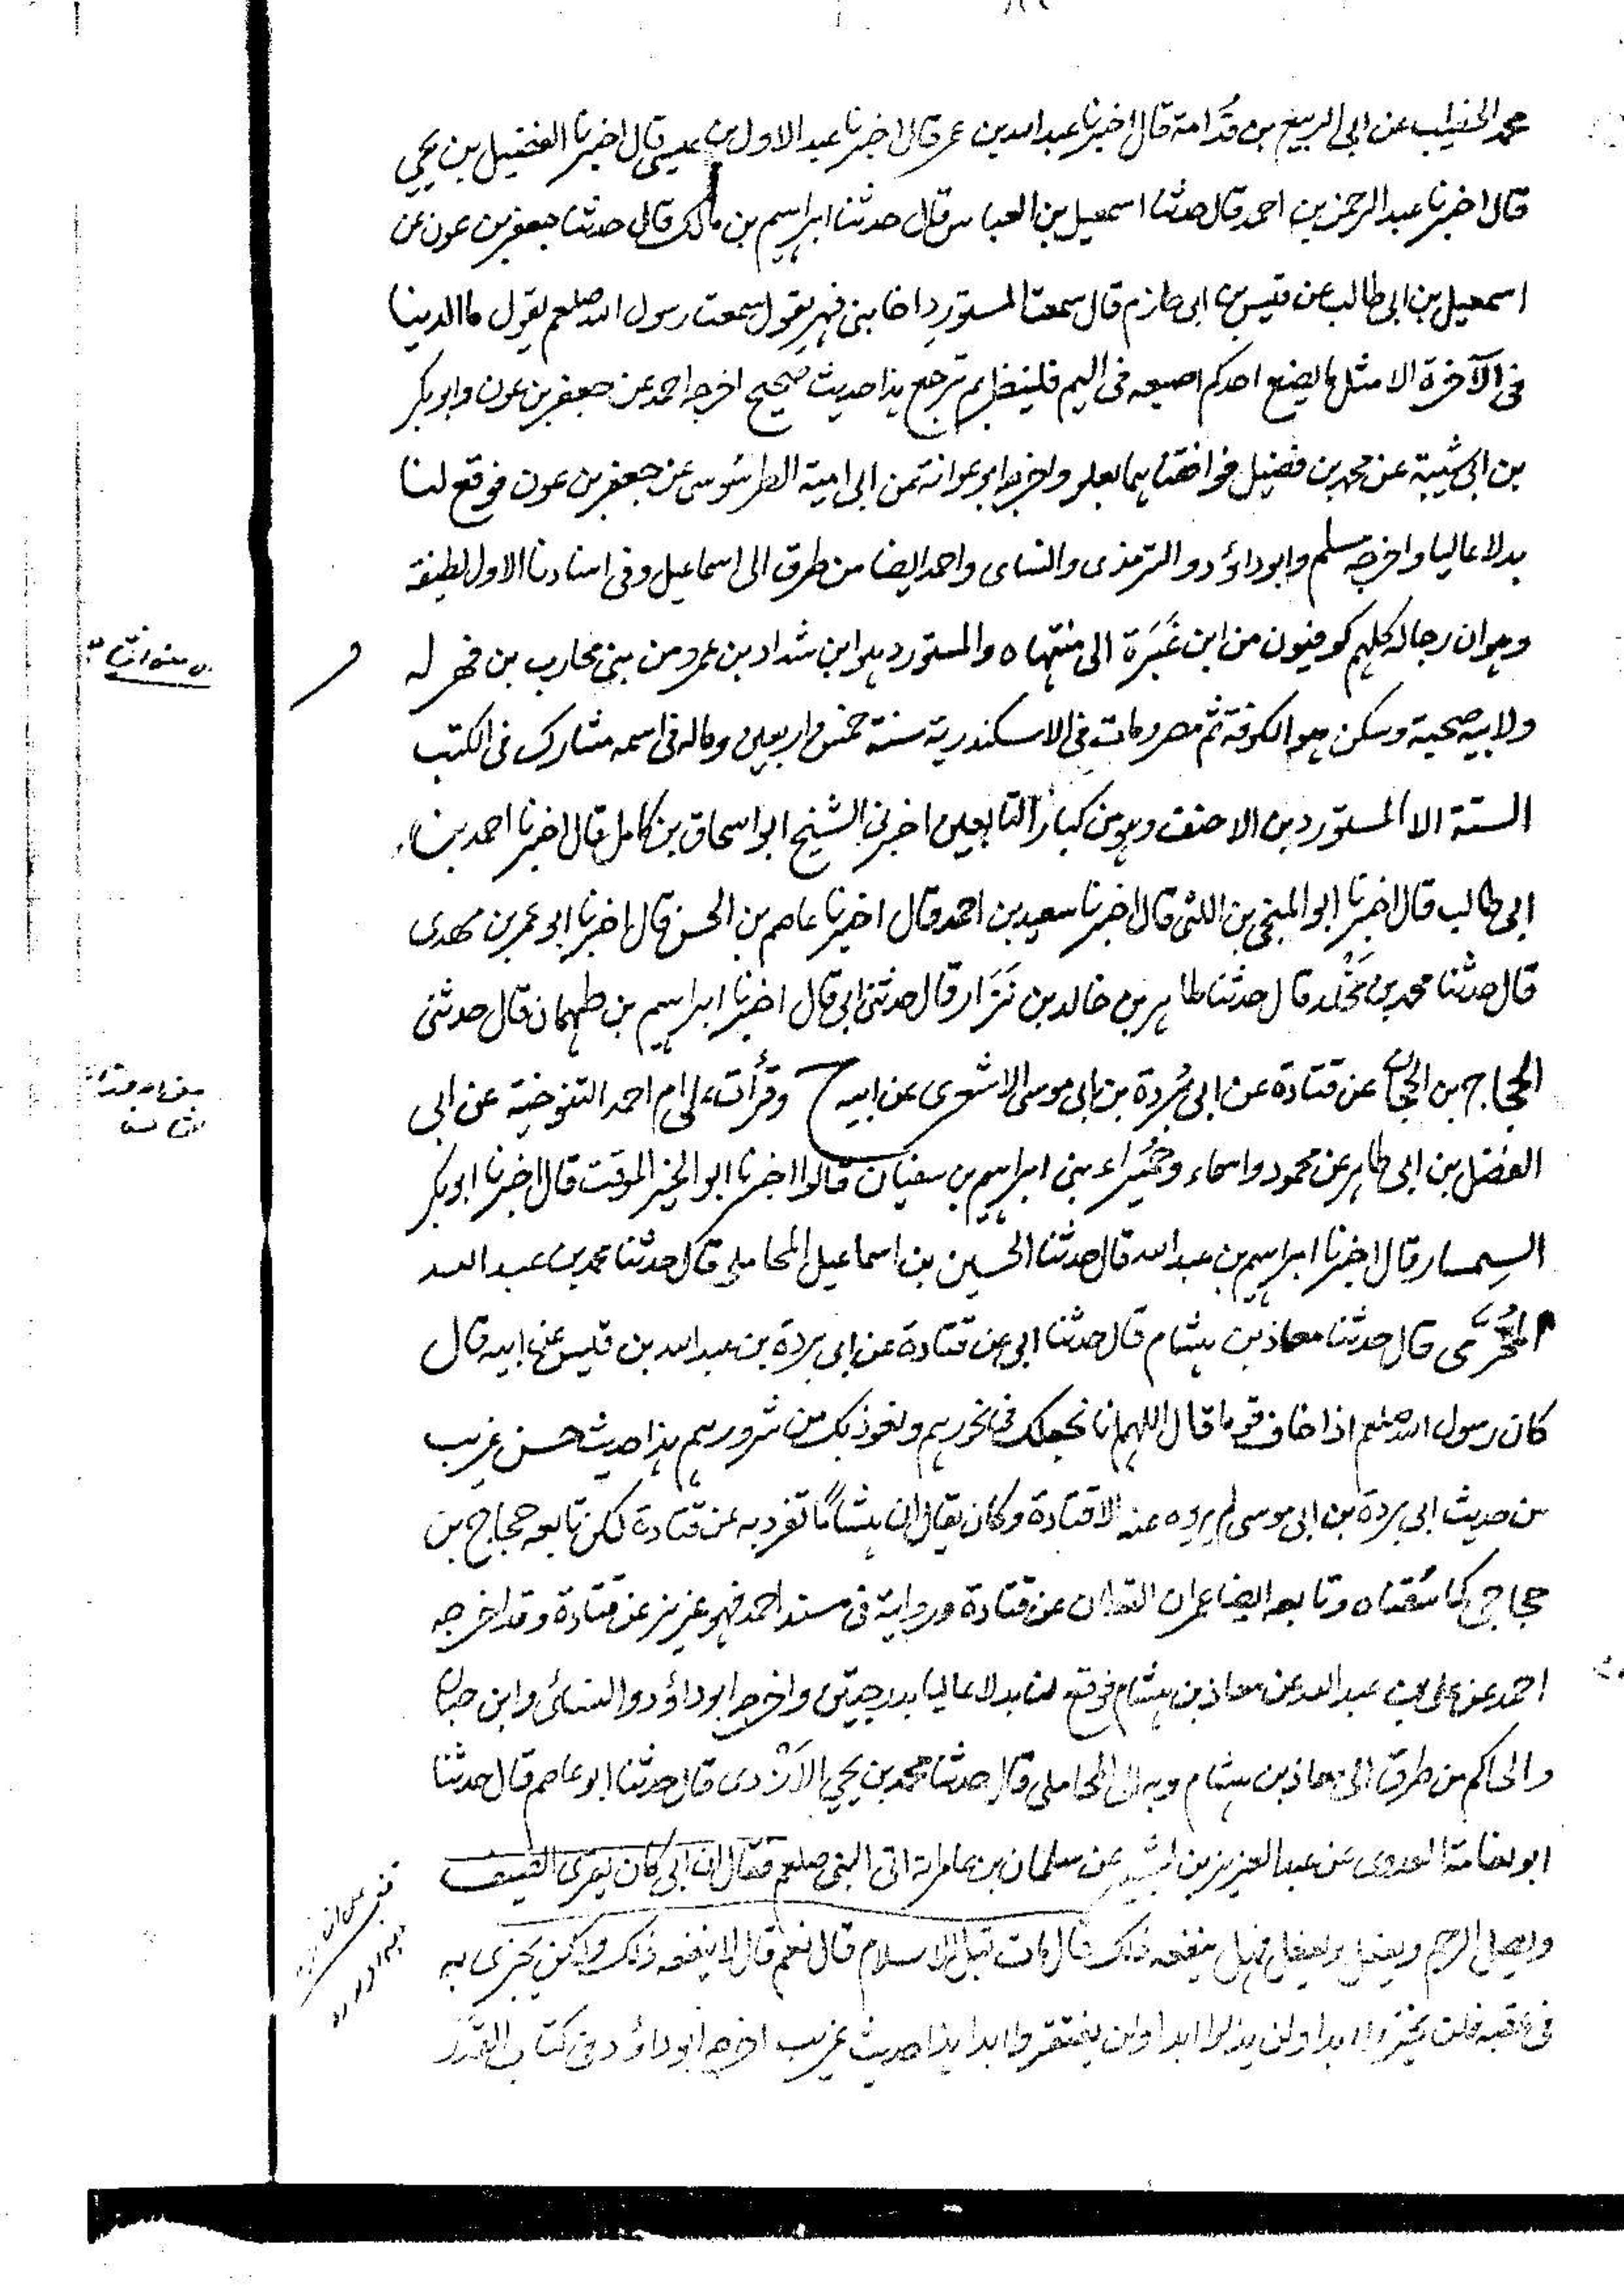 محمد الخطيب عن ابى الربيع بن قُدامة قال اخبرنا عبد الله بن عمر قال اخبرنا عبد الاول بن عيسى قال اخبرنا الفضيل بن يحيى
قال اخبرنا عبد الرحمن بن احمد قال حدثنا اسمعيل بن العباس قال حدثنا ابراهيم بن مالك قال حدثنا جعفر بن عون عن
اسمعيل بن ابى طالب عن قيس بن ابى حازم قال سمعت المستورد اخا بنى فهر يقول سمعت رسول الله صلعم يقول ما الدنيا
فى الآخرة الا مثل ما يضع احدكم اصبعه فى اليم فلينظر بم ترجع هذا حديث صحيح اخرجه احمد عن جعفر بن عون وابو بكر
بن ابى شيبة عن محمد بن فضيل فوافقناهما بعلو واخرجه ابو عوانة عن ابى امية الطرسُوسى عن جعفر بن عون فوقع لنا
بدلا عاليا واخرجه مسلم وابو داؤد والترمذى والنساى واحمد ايضا من طرق الى اسماعيل وفى اسنادنا الاول لطيفة
وهو ان رجاله كلهم كوفيون من ابن عَبَرَة الى منتهاه والمستورد هو ابن شداد بن عمرو من بنى محارب بن فهر له
ولابيه صحبة وسكن هو الكوفة ثم مصر ومات فى الاسكندرية سنة خمس واربعين وماله فى اسمه مشارك فى الكتب
الستة الا المستورد بن الاحنف وهو من كبار التابعين اخبرنى الشيخ ابو اسحاق بن كامل قال اخبرنا احمد بن
ابى طالب قال اخبرنا ابو المنجى بن اللتى قال اخبرنا سعيد بن احمد قال اخبرنا عاصم بن الحسن قال اخبرنا ابو عمر بن مهدى
قال حدثنا محمد بن مَخْلَد قال حدثنا طاهر بن خالد بن نَزَار قال حدثنى ابى قال اخبرنا ابراهيم بن طهمان قال حدثنى
الحجاج بن الحجاج عن قتادة عن ابى بُردة بن ابى موسى الاشعرى عن ابيه ح وقرأت على ام احمد التنوخية عن ابى
الفضل بن ابى طاهر عن محمود واسماء وحُميراء بنى ابراهيم بن سفيان قالوا اخبرنا ابو الخير الموقت قال اخبرنا ابو بكر
السِمسار قال اخبرنا ابراهيم بن عبد الله قال حدثنا الحسين بن اسماعيل المحاملى قال حدثنا محمد بن عبد الله
المُخَرَّمى قال حدثنا معاذ بن هشام قال حدثنا ابى عن قتادة عن ابى بردة بن عبد الله بن قيس عن ابيه قال
كان رسول الله صلعم اذا خاف قوما قال اللهم انا نجعلك فى نحورهم ونعوذ بك من شرورهم هذا حديث حسن غريب
من حديث ابى بردة بن ابى موسى لم يروه عنه الا قتادة وكان يقال ان هشامًا تفرد به عن قتادة لكن تابعه حجاج بن
حجاج كما سُقناه وتابعه ايضا عمران القطان عن قتادة وروايته فى مسند احمد فهو عزيز عن قتادة وقد اخرجه
احمد عن على بن عبد الله عن معاذ بن هشام فوقع لنا بدلا عاليا بدرجتين واخرجه ابو داؤد والنسائى وابن حبان
والحاكم من طرق الى معاذ بن هشام وبه الى المحاملى قال حدثنا محمد بن يحيى الاَزْدى قال حدثنا ابو عاصم قال حدثنا
ابو نعامة العدوى عن عبد العزيز بن بشير عن سلمان بن عامر انه اتى النبى صلعم فقال ان ابى كان يقرى الضيف
ويصل الرحم ويفعل ويفعل فهل ينفعه ذلك قال مات قبل الاسلام قال نعم قال لا ينفعه ذلك ولكن يجزى به
فى عقبه فلن تخزوا ابدا ولن يذلوا ابدا ولن يفتقروا ابدا هذا حديث غريب اخرجه ابو داؤد فى كتاب القدر